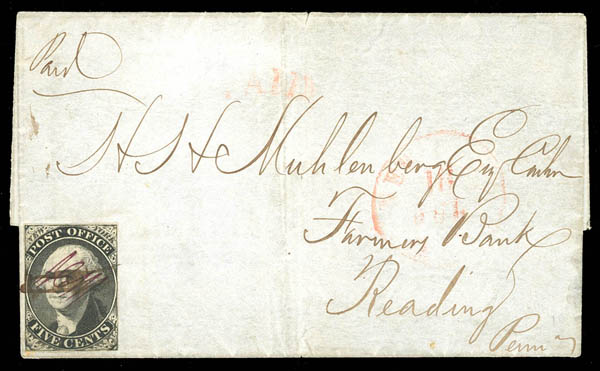 Paid
PAID
H H Muhlenberg Esq Cashr
10
Farmers Bank
Reading
Penna
POST OFFICE
FIVE CENTS